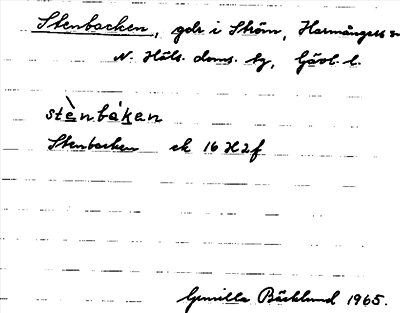 Stenbacken, gdr i Ström, Harmångers sn
N. Häls. doms. tg, Gävl. l.
stè̱nbáḵen
Stenbacken ek 16 H 2 f
Gunilla Bäcklund 1965.